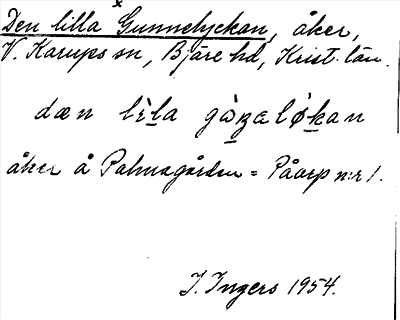 Den lilla Gunnelyckan, åker,
V. Karups sn, Bjäre hd, Krist. län.
dæn lìla
åker å Palmagården = Påarp n:r 1.
J. Ingers 1954.